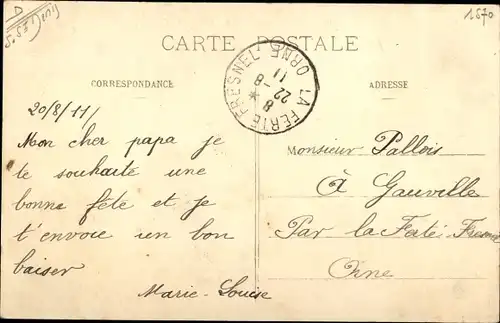 1570
CARTE POSTALE
LA FERTE FRESNEL ORNE
8
22 - 8
11
CORRESPONDANCE
ADRESSE
20/8/11/
Mon cher papa je
te souhaite une
bonne fête et je
t'envoie un bon
baiser
Marie-Louise
Monsieur Pallois
À Gauville
Par la Ferté-Fresnel
Orne